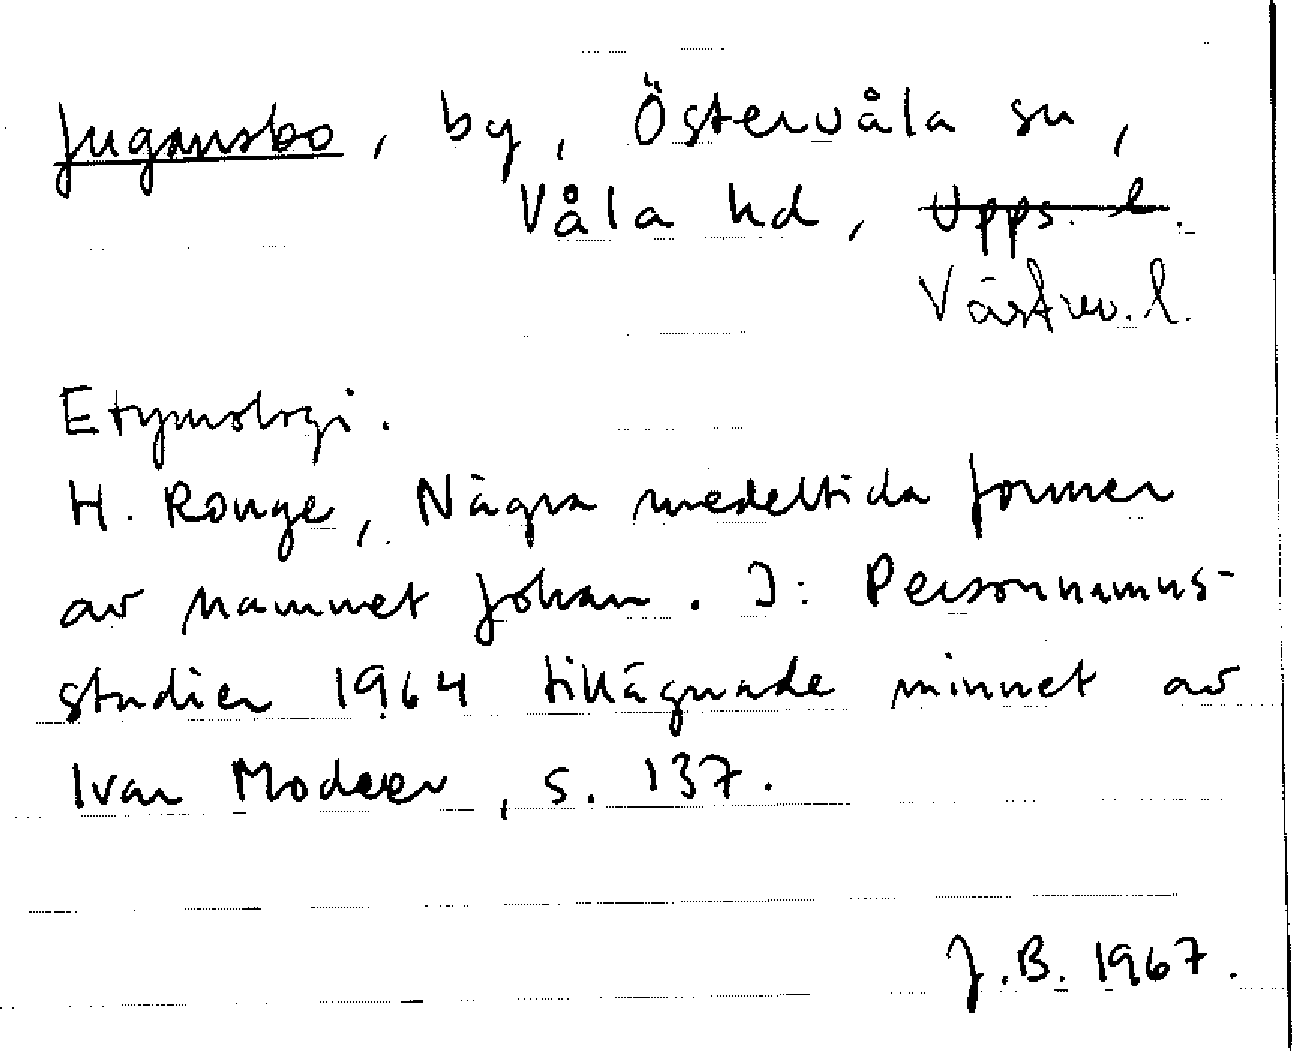 Jugansbo, by, Östervåla sn,
Våla hd, Upps. l.
Västm. l.
Etymologi.
H. Ronge, Några medeltida former
av namnet Johan. I: Personnamns-
studier 1964 tillägnade minnet av
Ivar Modéer, s. 137.
J.B. 1967.